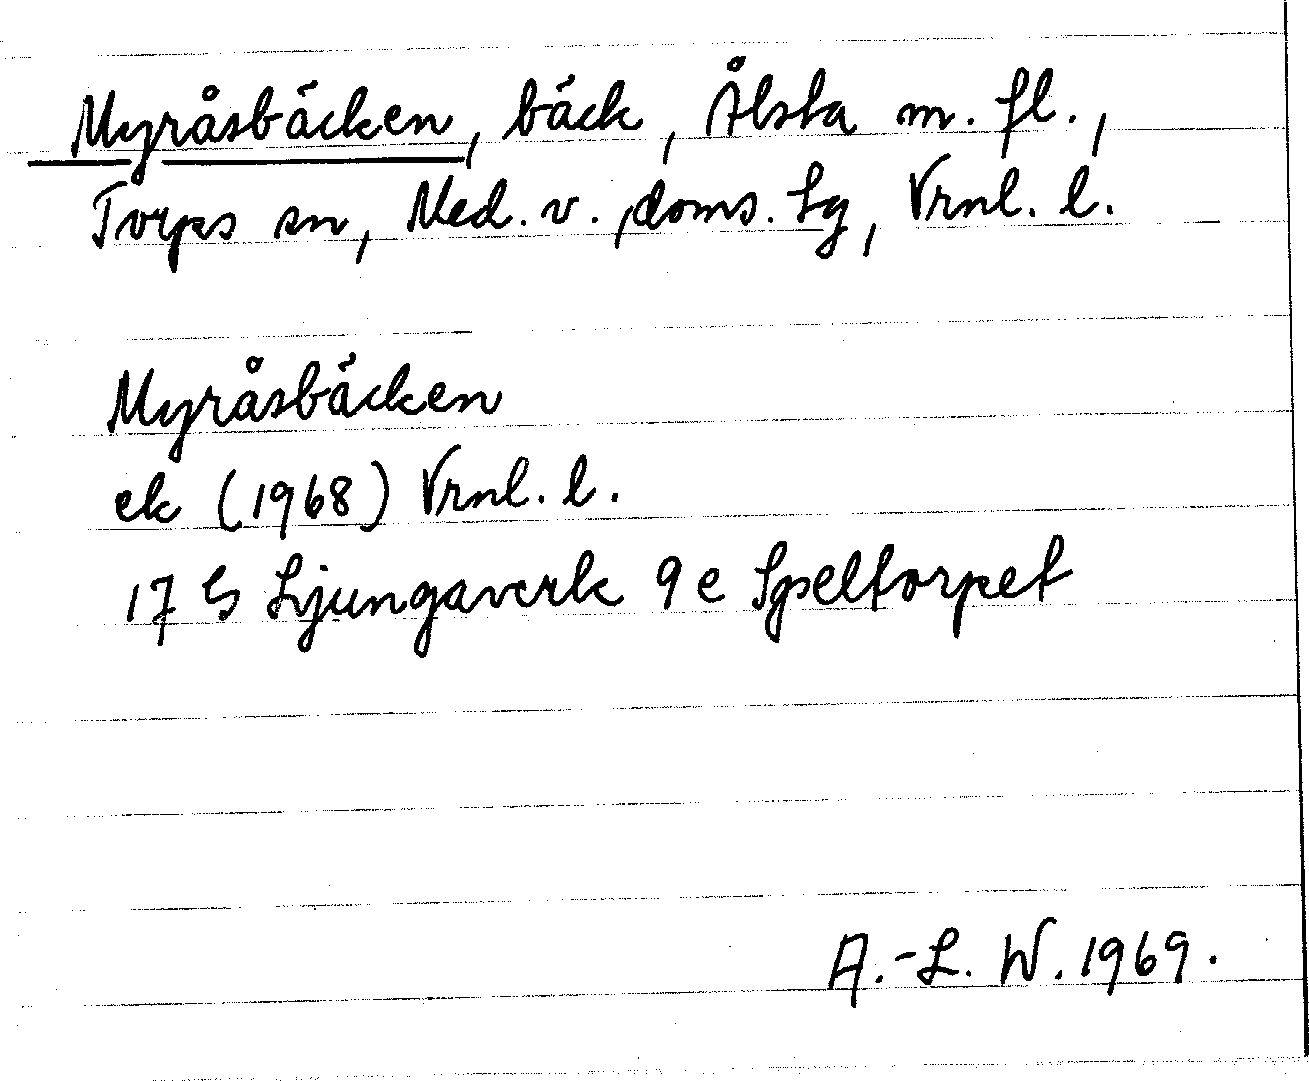 Myråsbäcken, bäck, Ålsta m. fl.,
Torps sn, Med. v. doms. Lg, Vrnl. l.
Myråsbäcken
ek (1968) Vrnl. l.
17 G Ljungaverk 9 e Speltorpet
A.-L. W. 1969.